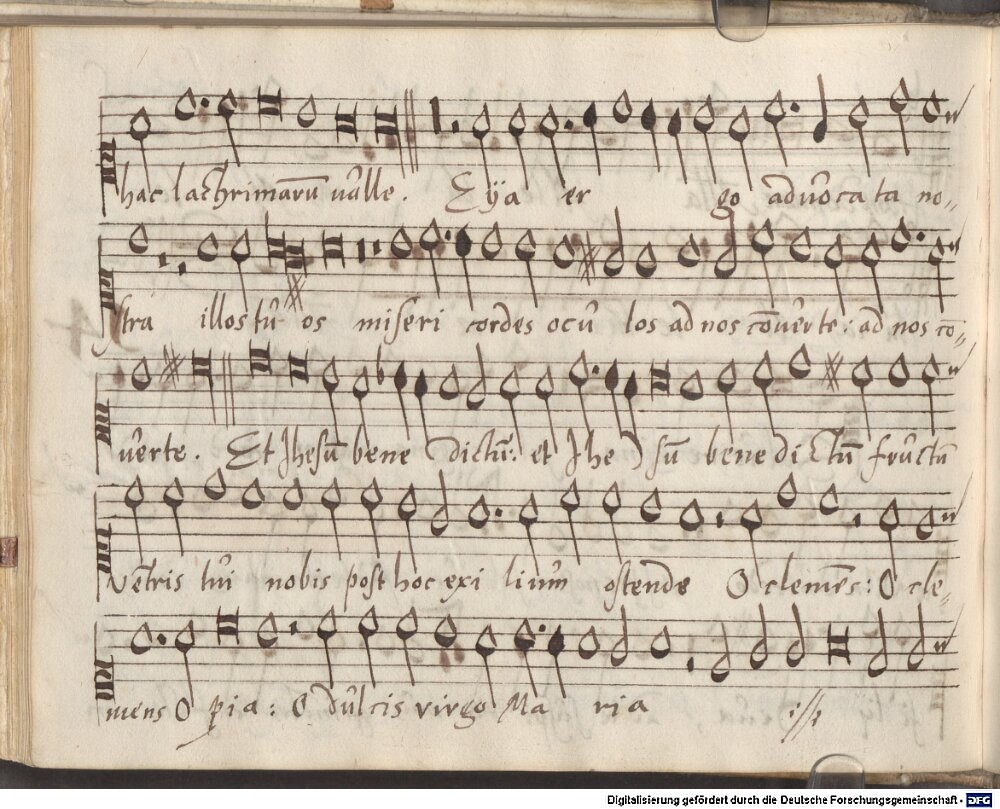 hac lachrimarū ualle. Eya er go aduocata no„
stra illos tuos misericordes oculos ad nos cōuerte: ad nos co„
uerte. Et Ihesū bene dictū: et Ihesū benedictū fructū
Vētris tui nobis post hoc exilium ostende O clemēs: O cle„
mens O pia: O dulcis virgo Maria :ij:
Digitalisierung gefördert durch die Deutsche Forschungsgemeinschaft - DFG